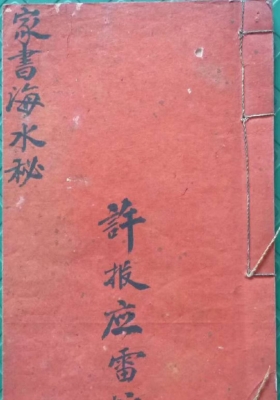 家書海水秘
許振应雷